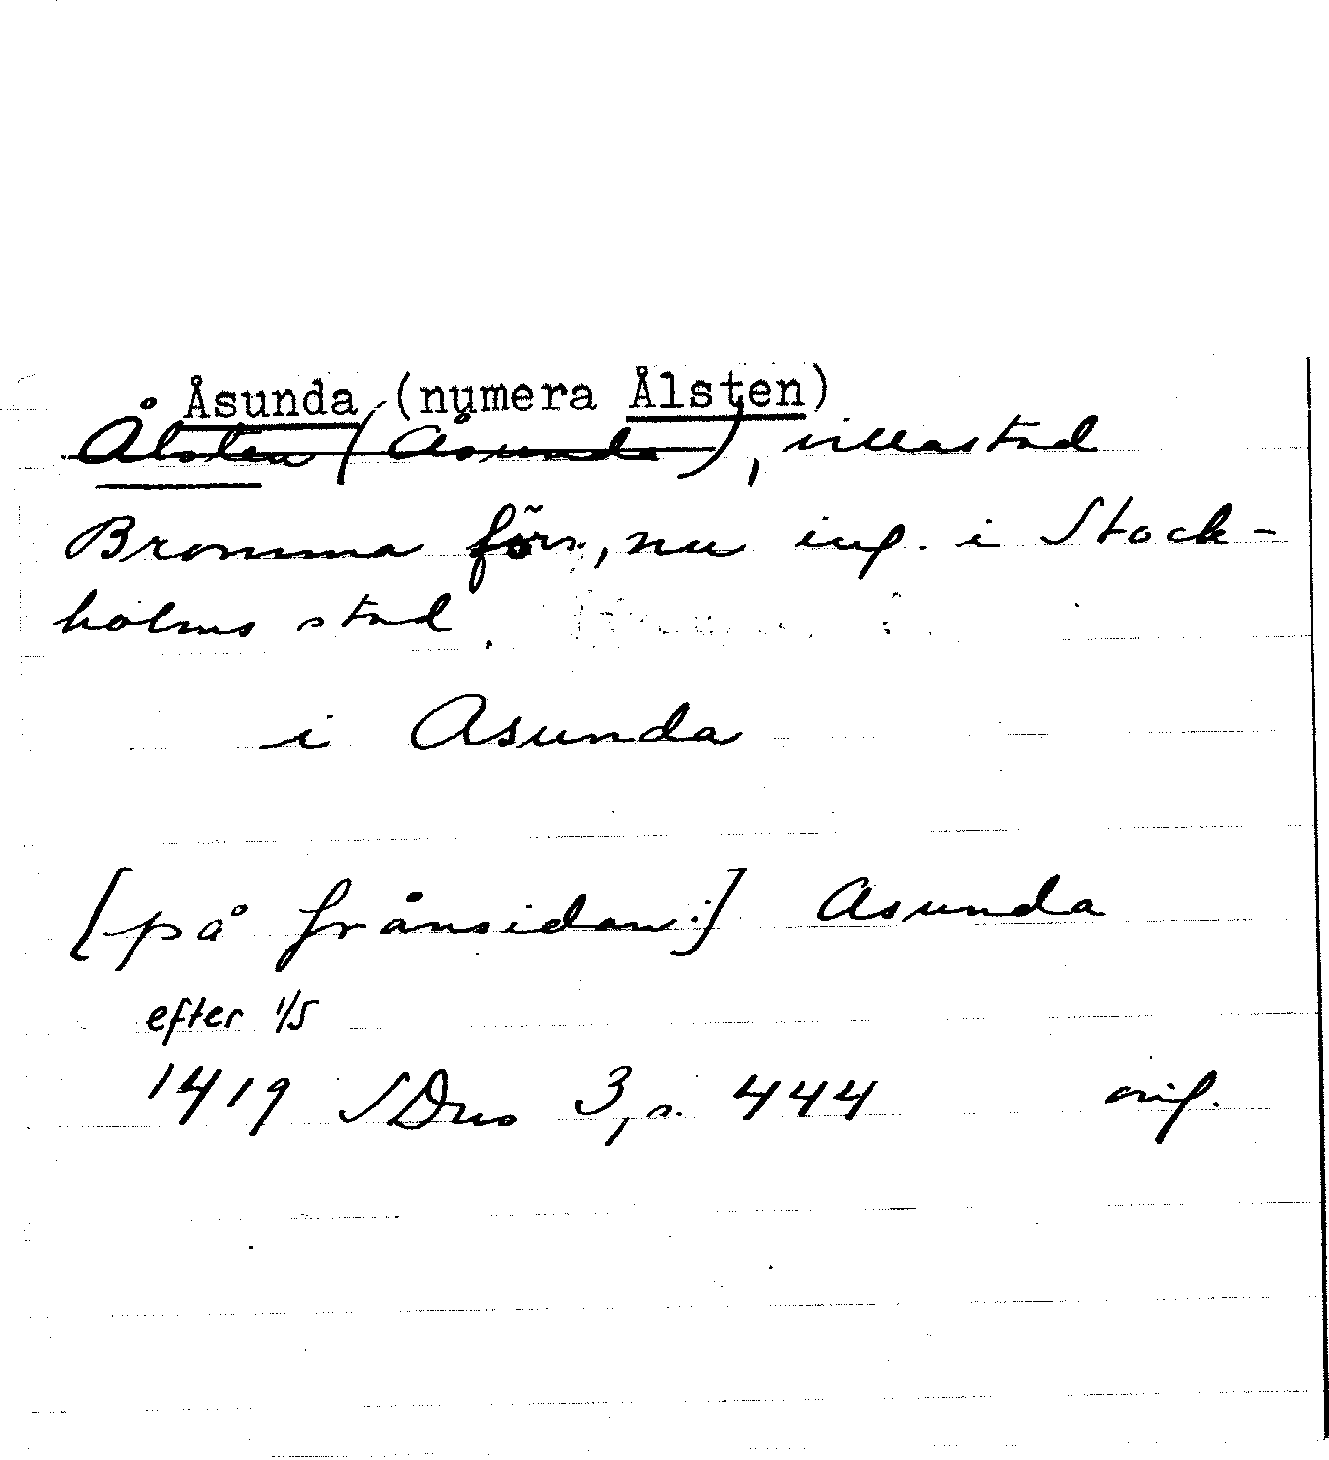 Åsunda (numera Ålsten)
Ålsten (Åsunda), villastad
Bromma förs., nu ing. i Stock-
holms stad.
i Asunda
[på frånsidan:] Asunda
efter 1/5
1419 SDns 3, s. 444 orig.